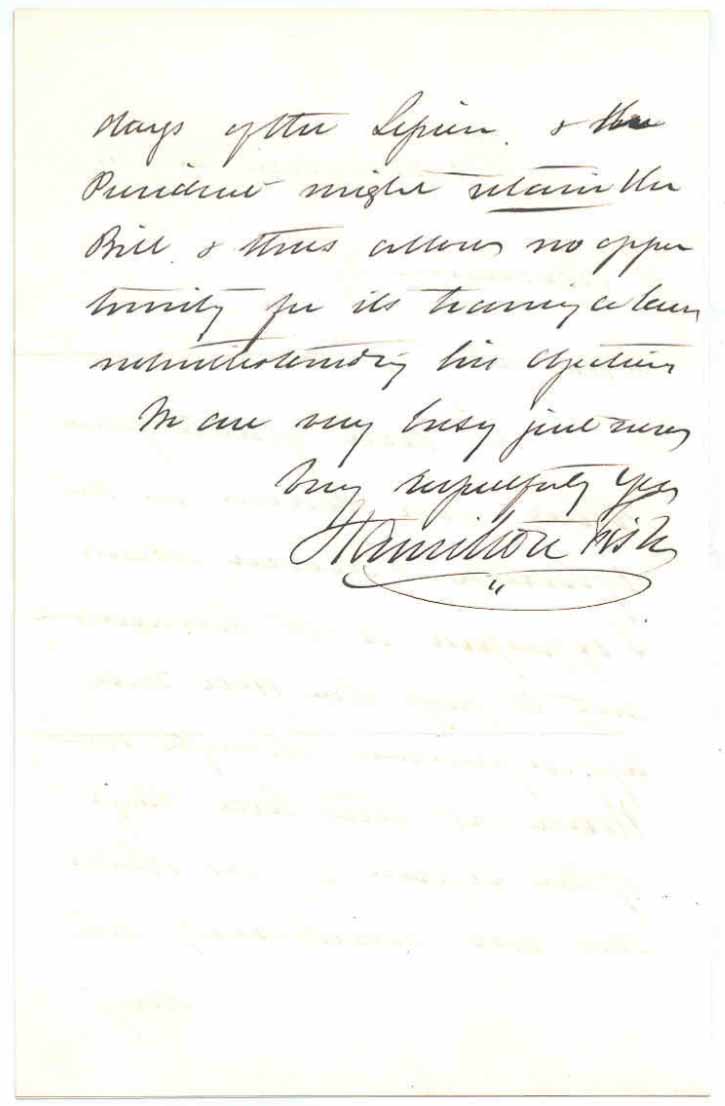 days of the Session. & the
President might retain the
Bill. & thus allow no oppor
tunity for its becoming a law
notwithstanding his objections
We are very busy just now
Very respectfully Yrs
Hamilton Fish